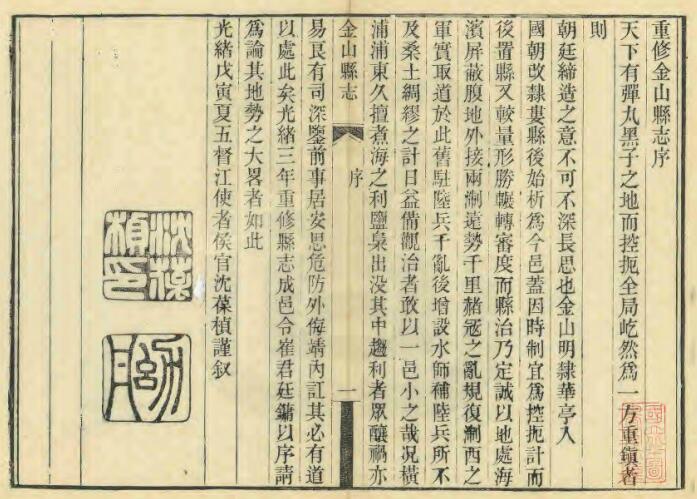 重修金山縣志序
天下有彈丸黑子之地而控扼全局屹然爲一方重鎮者
則
朝廷締造之意不可不深長思也金山明隸華亭入
國朝改隸婁縣後始析爲今邑蓋因時制宜爲控扼計而
後置縣又較量形勝輾轉審度而縣治乃定誠以地處海
濱屏蔽腹地外接兩淛遠勢千里赭寇之亂規復淛西之
軍實取道於此舊駐陸兵千亂後增設水師補陸兵所不
及桑土綢繆之計日益備觀治者敢以一邑小之哉況橫
浦浦東久擅煮海之利鹽梟出没其中趨利者眾釀禍亦
金山縣志
序
一
易良有司深鑒前事居安思危防外侮靖內訌其必有道
以處此矣光緒三年重修縣志成邑令崔君廷鏞以序請
爲論其地勢之大畧者如此
光緒戊寅夏五督江使者侯官沈葆楨謹叙
沈葆
楨印